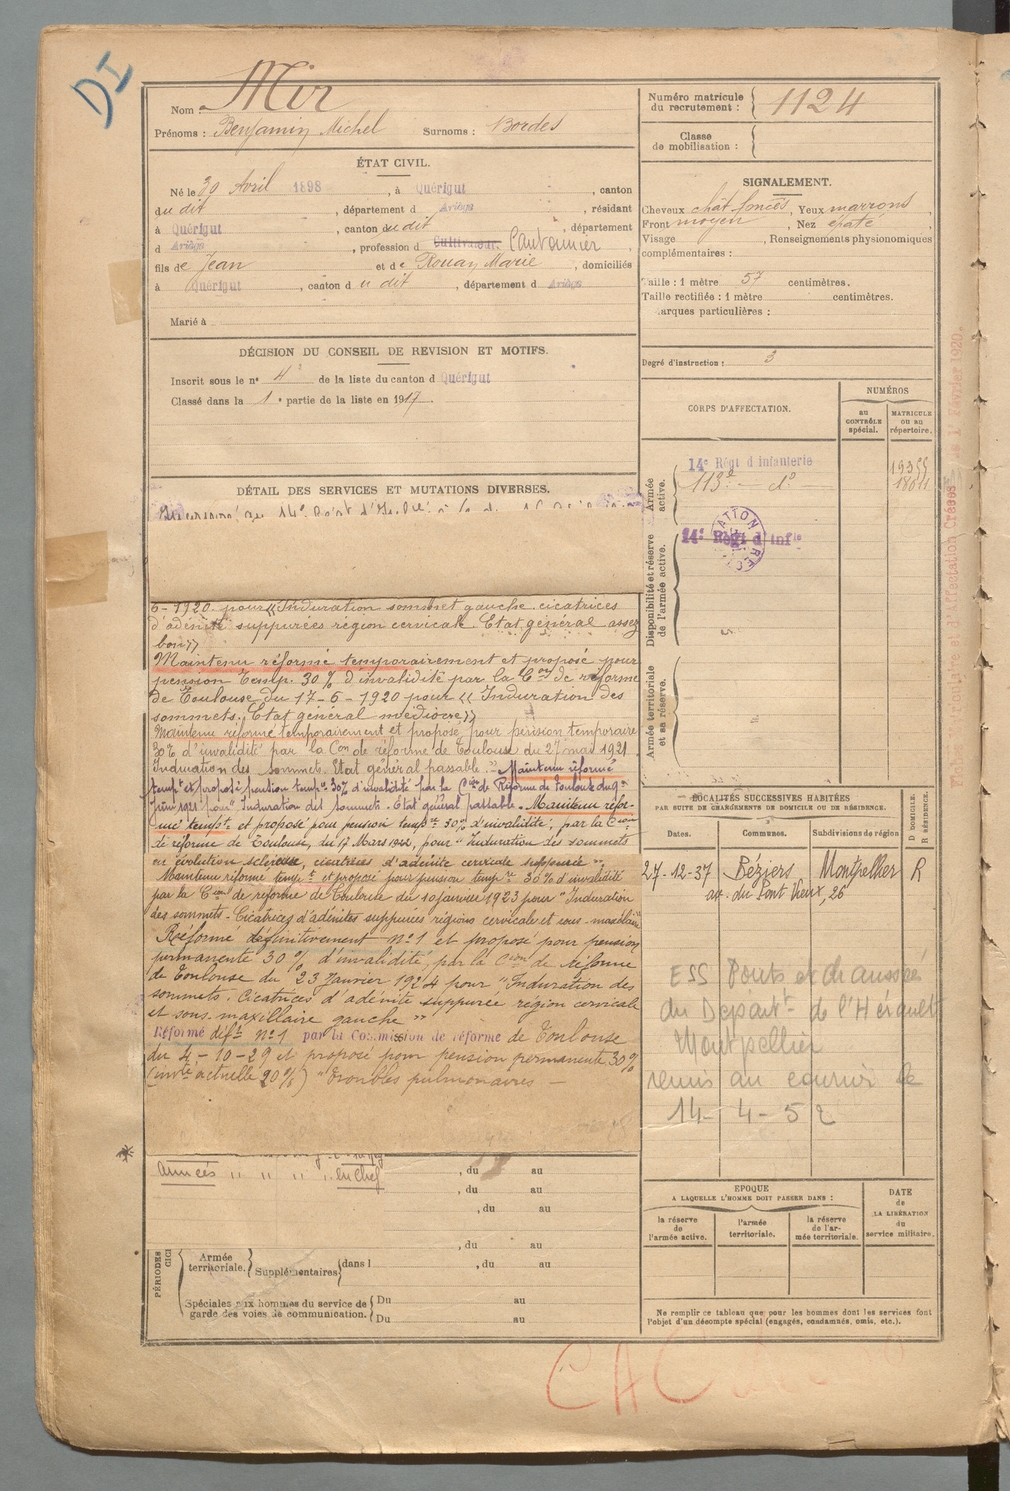 DI
Nom : Mir
Prénoms : Benjamin Michel Surnoms : Bordes
Numéro matricule du recrutement : 1124
Classe de mobilisation :
ÉTAT CIVIL.
Né le 30 Avril 1898, à Quérigut, canton
du dit, département d Ariège, résidant
à Quérigut, canton du dit, département
d Ariège, profession d Cultivateur. Cantonnier
fils de Jean et de Rouan Marie, domiciliés
à Quérigut, canton du dit, département d Ariège
Marié à
SIGNALEMENT.
Cheveux chât foncés, Yeux marrons,
Front moyen, Nez épaté,
Visage , Renseignements physionomiques
complémentaires :
Taille : 1 mètre 57 centimètres.
Taille rectifiée : 1 mètre centimètres.
arques particulières :
Degré d'instruction : 3
DÉCISION DU CONSEIL DE REVISION ET MOTIFS.
Inscrit sous le n° 4 de la liste du canton d Quérigut
Classé dans la 1e partie de la liste en 1917
CORPS D'AFFECTATION.
NUMÉROS
au CONTRÔLE spécial.
MATRICULE OU AU répertoire.
Armée active.
14e Régt d infanterie
113e — do —
Disponibilité et réserve de l'armée active.
14e Régt d infie
Armée territoriale et sa réserve.
DÉTAIL DES SERVICES ET MUTATIONS DIVERSES.
6-1920 pour « Induration sommet gauche cicatrices
d'adénite suppurées région cervicale. Etat général assez
bon »
Maintenu réformé temporairement et proposé pour
pension temp. 30% d'invalidité par la Con de réforme
de Toulouse du 17-6-1920 pour « Induration des
sommets. Etat général médiocre »
Maintenu réformé temporairement et proposé pour pension temporaire
30% d'invalidité par la Con de réforme de Toulouse du 27 mai 1921
Induration des sommets. Etat général passable. » Maintenu réformé
tempt et proposé pension tempre 30% d'invalidité par la Cion de Réforme de Toulouse du
juin 1921 pour "Induration des sommets. Etat général passable. Maintenu réfor-
mé tempt et proposé pour pension tempre 30% d'invalidité, par la Cion
de réforme de Toulouse, du 17 Mars 1922, pour "Induration des sommets
en évolution scléreuse, cicatrices d'adénite cervicale suppurée "
Maintenu réformé tempt et proposé pour pension tempre 30% d'invalidité
par la Cion de réforme de Toulouse du 10 janvier 1923 pour "Induration
des sommets. Cicatrices d'adénites suppurées régions cervicale et sous-maxillaire
Réformé définitivement n°1 et proposé pour pension
permanente 30% d'invalidité, par la Cion de réforme
de Toulouse du 23 Janvier 1924 pour "Induration des
sommets. Cicatrices d'adénite suppurée région cervicale
et sous-maxillaire gauche "
Réformé déft N°1 par la Commission de réforme de Toulouse
du 4-10-29 et proposé pour pension permanente 30%
(invté actuelle 20%) "Troubles pulmonaires —
LOCALITÉS SUCCESSIVES HABITÉES
PAR SUITE DE CHANGEMENTS DE DOMICILE OU DE RÉSIDENCE.
Dates. Communes. Subdivisions de région
D DOMICILE. R RÉSIDENCE.
27-12-37 Béziers Montpellier R
av. du Pont Vieux, 26
ESS Ponts et chaussée
du Départt de l'Hérault
Montpellier
remis au courrier le
14-4-52
Armées " " " " en Chef , du au
, du au
, du au
, du au
PÉRIODES
Armée territoriale. Supplémentaires dans l , du au
Spéciales aux hommes du service de garde des voies de communication. Du au
Du au
EPOQUE
A LAQUELLE L'HOMME DOIT PASSER DANS :
la réserve de l'armée active.
l'armée territoriale.
la réserve de l'armée territoriale.
DATE de LA LIBÉRATION du service militaire.
Ne remplir ce tableau que pour les hommes dont les services font
l'objet d'un décompte spécial (engagés, condamnés, omis, etc.).